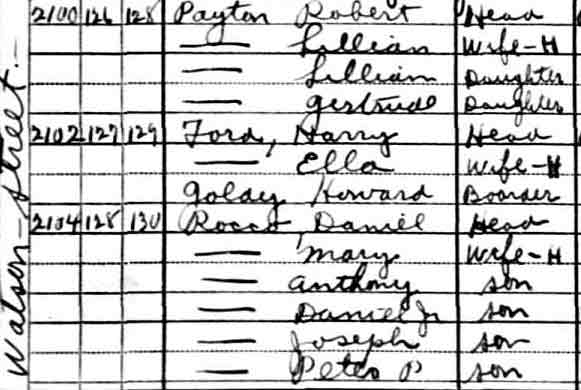 2100 126 128 Payton Robert Head
— Lillian Wife-H
— Lillian Daughter
— Gertrude Daughter
2102 127 129 Ford, Harry Head
— Ella Wife-H
Goldey Howard Boarder
2104 128 130 Rocco, Daniel Head
— Mary Wife-H
— Anthony son
— Daniel Jr son
— Joseph son
— Peter P son
Watson-Street-